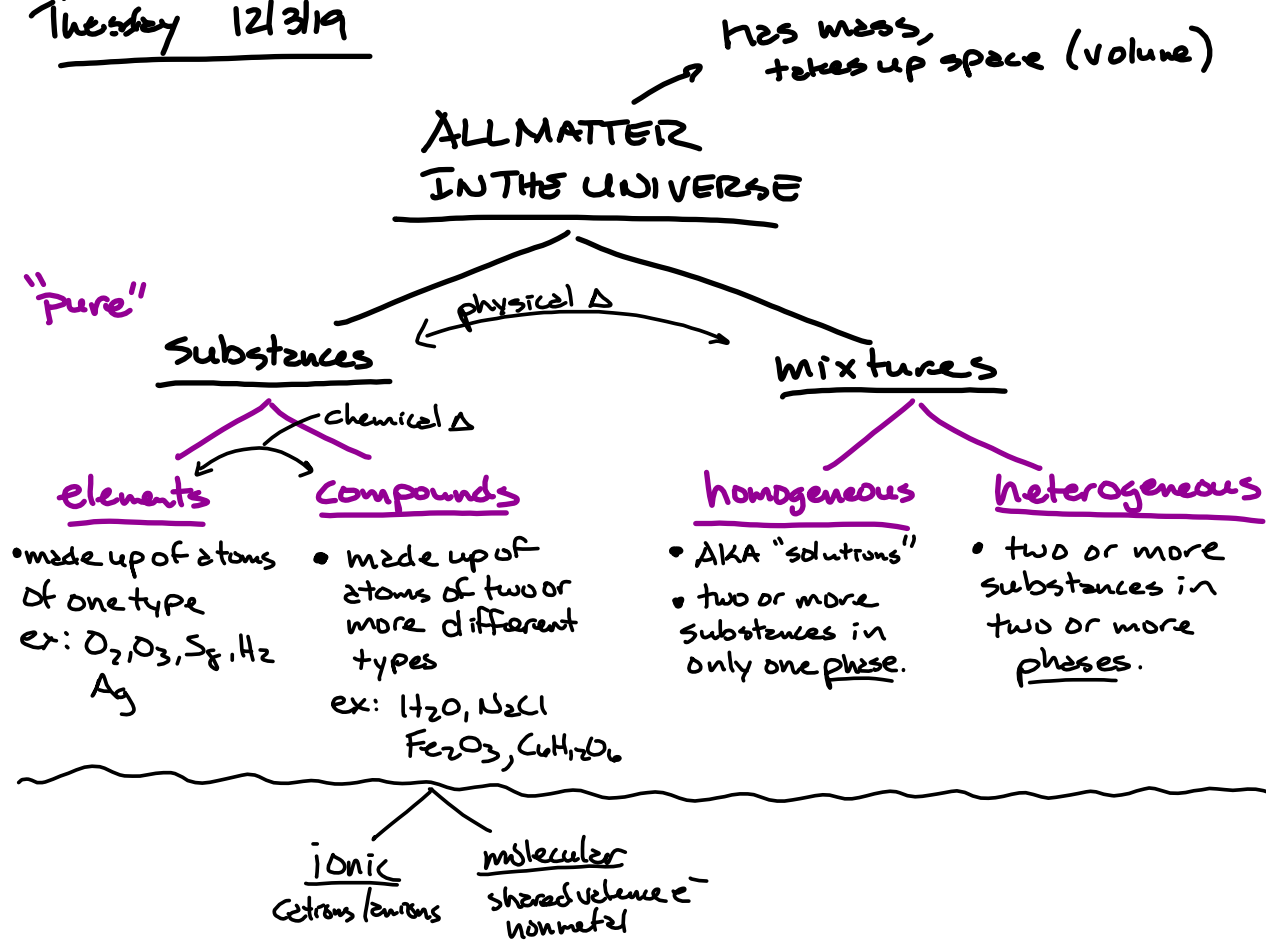 Thursday 12/3/19
has mass,
takes up space (volume)
ALL MATTER
IN THE UNIVERSE
"pure"
physical Δ
Substances
mixtures
chemical Δ
elements
compounds
homogeneous
heterogeneous
• made up of atoms
of one type
ex: O₂, O₃, S₈, H₂
Ag
• made up of
atoms of two or
more different
types
ex: H₂O, NaCl
Fe₂O₃, C₆H₁₂O₆
• AKA "solutions"
• two or more
substances in
only one phase.
• two or more
substances in
two or more
phases.
ionic
cations/anions
molecular
shared valence e⁻
nonmetal